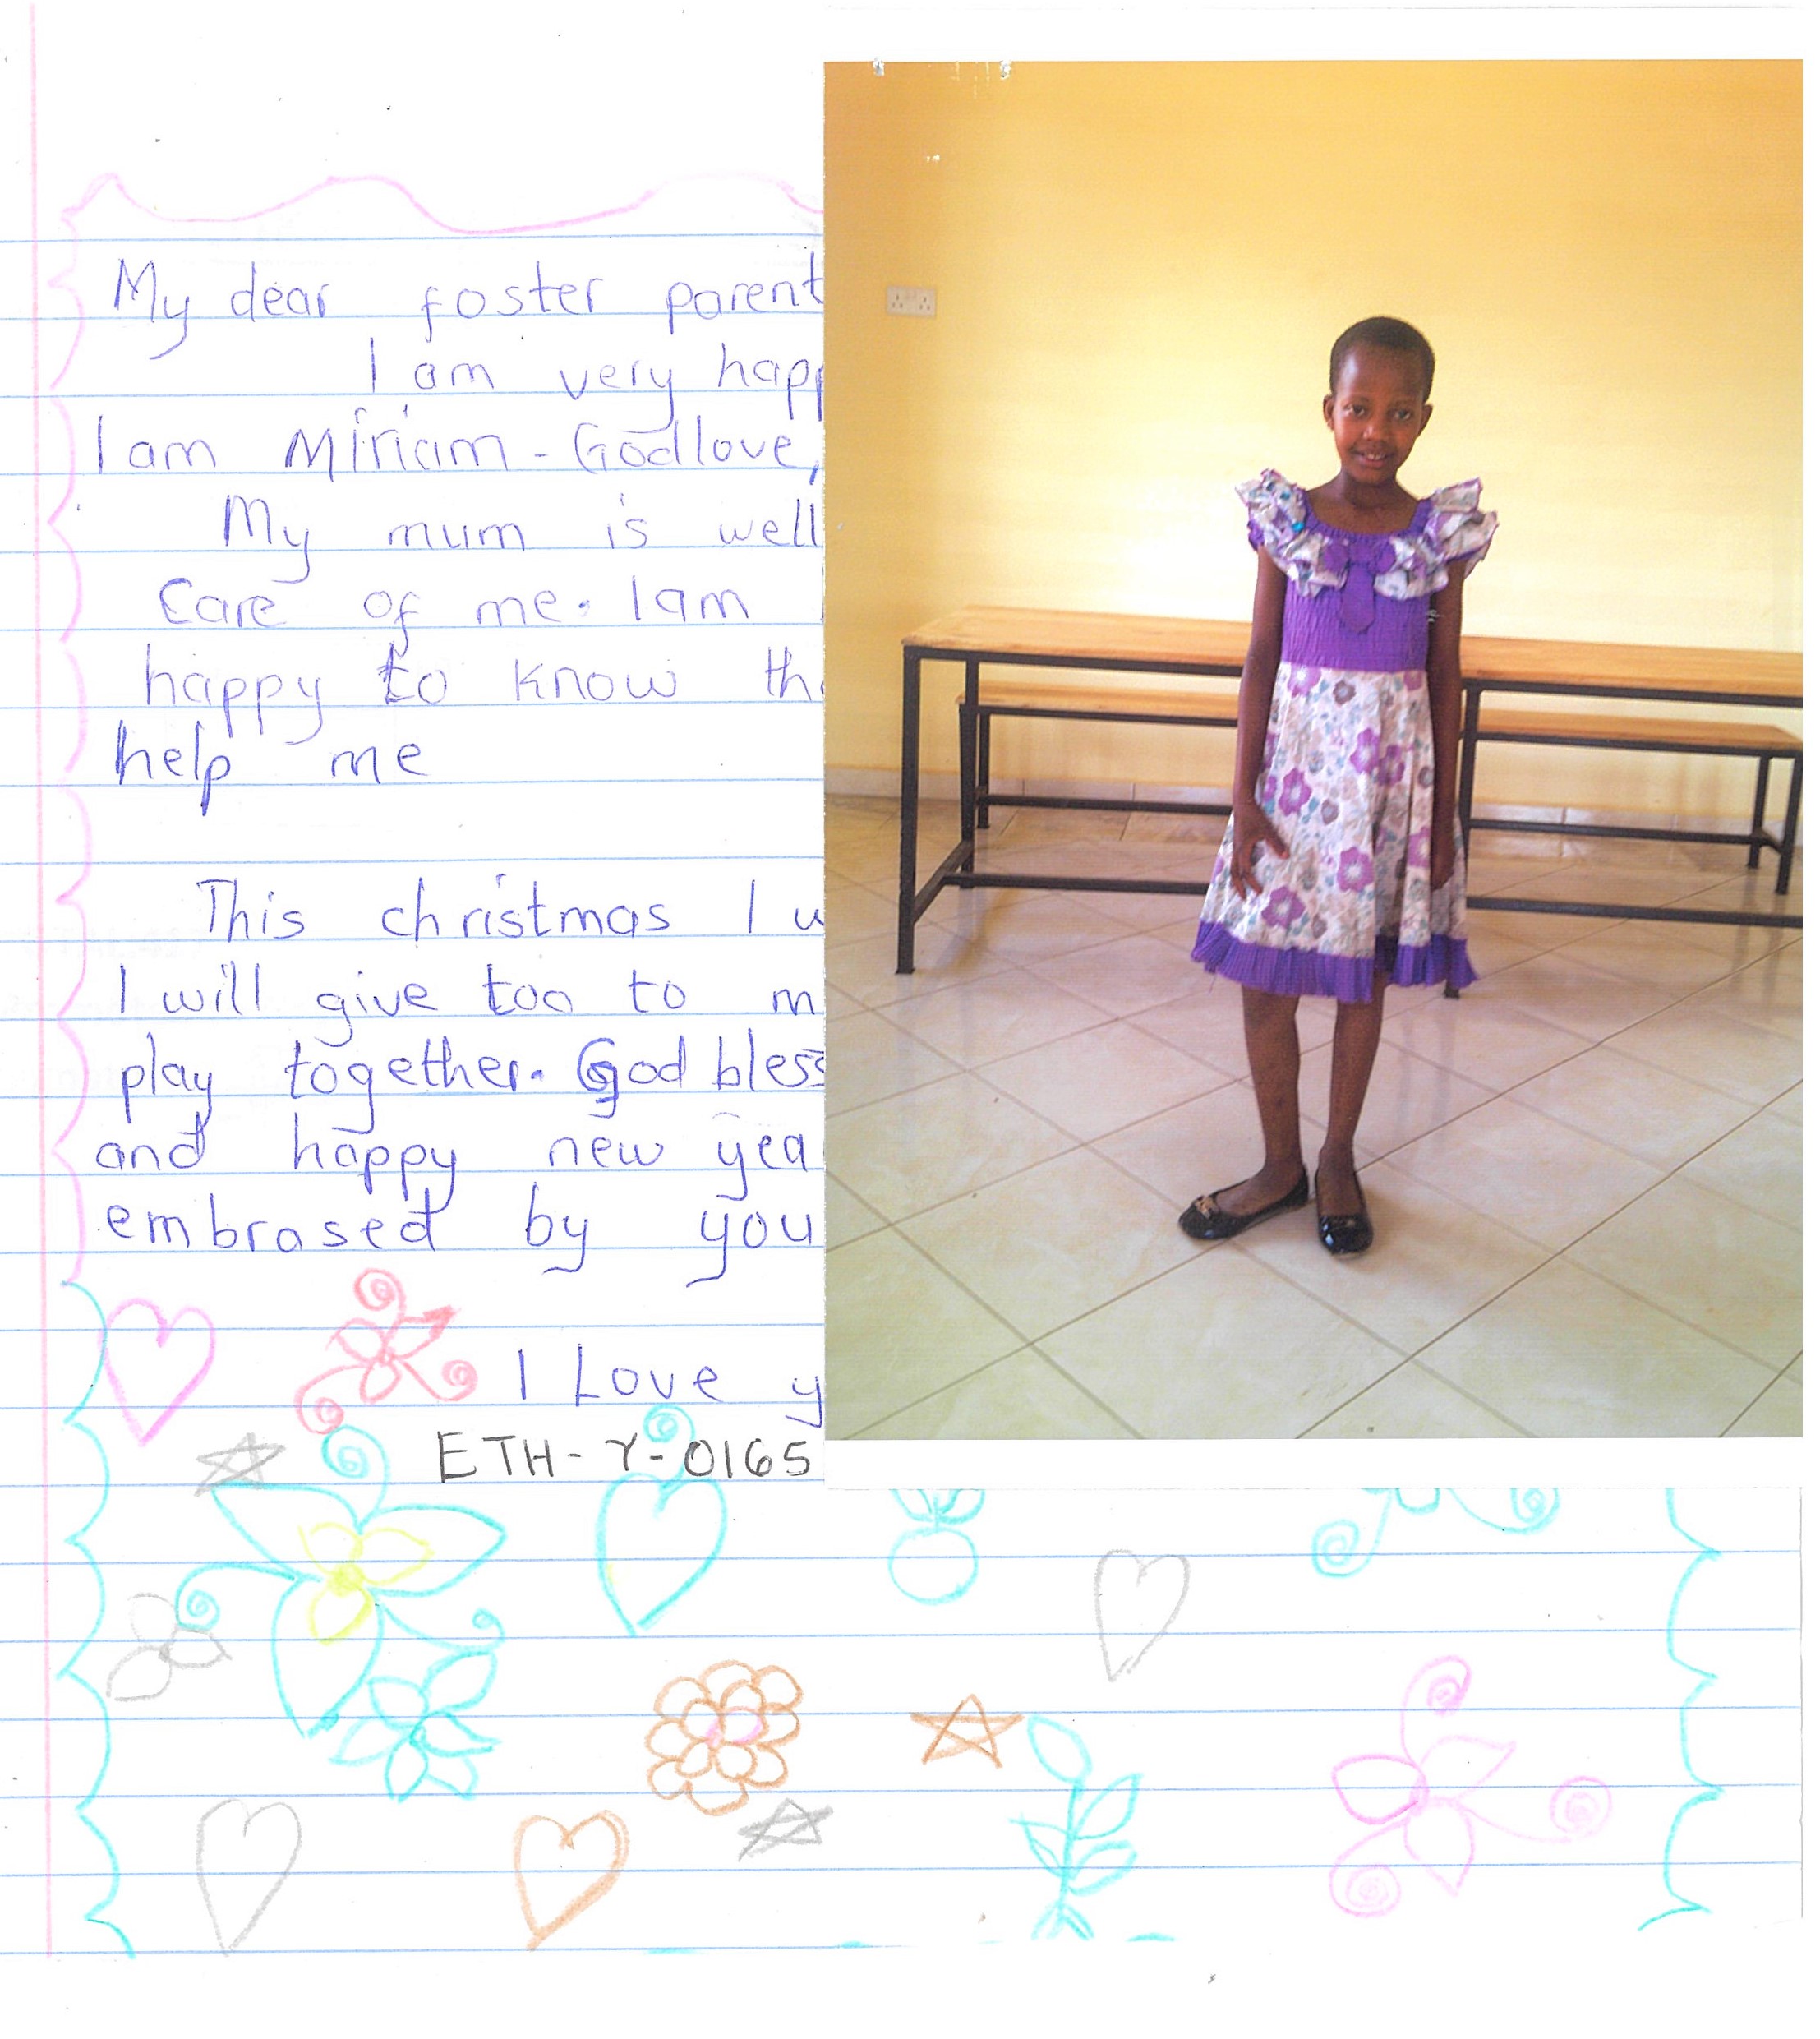 My dear foster parent
I am very happ
I am Miriam - Godlove,
My mum is well
Care of me. I am
happy to know tha
help me
This christmas I w
I will give too to m
play together. God bless
and happy new yea
embrased by you
I Love y
ETH-Y-0165